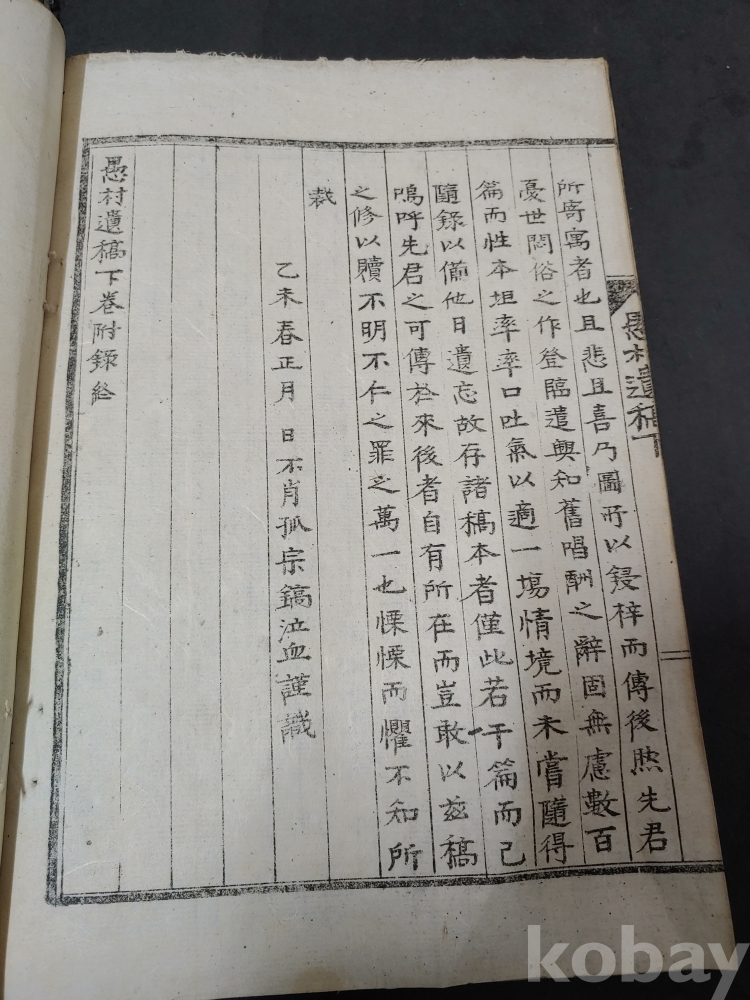 愚村遺稿下
所寄寓者也且悲且喜乃圖所以鋟梓而傳後然先君
憂世悶俗之作登臨遣興知舊唱酬之辭固無慮數百
篇而性本坦率率口吐氣以適一場情境而未嘗隨得
隨錄以備他日遺忘故存諸稿本者僅此若干篇而已
嗚呼先君之可傳於來後者自有所在而豈敢以玆稿
之修以贖不明不仁之罪之萬一也慄慄而懼不知所
裁
乙未春正月 日不肖孤宗鎬泣血謹識
愚村遺稿下卷附錄終
kobay